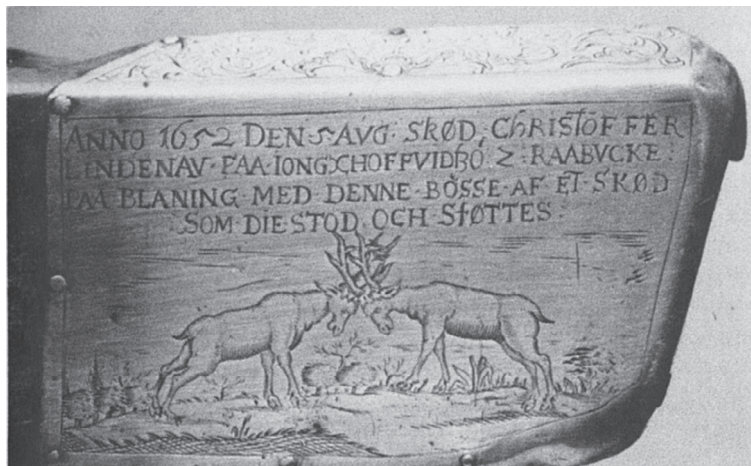 ANNO 1652 DEN 5 AUG· SKØD, CHRISTOFFER
LINDENAV· PAA IONGXHOFFVIDBO, 2: RAABVCKE:
PAA BLANING MED DENNE·BÖSSE·AF ET·SKØD
SOM DIE STOD OCH STØTTES·